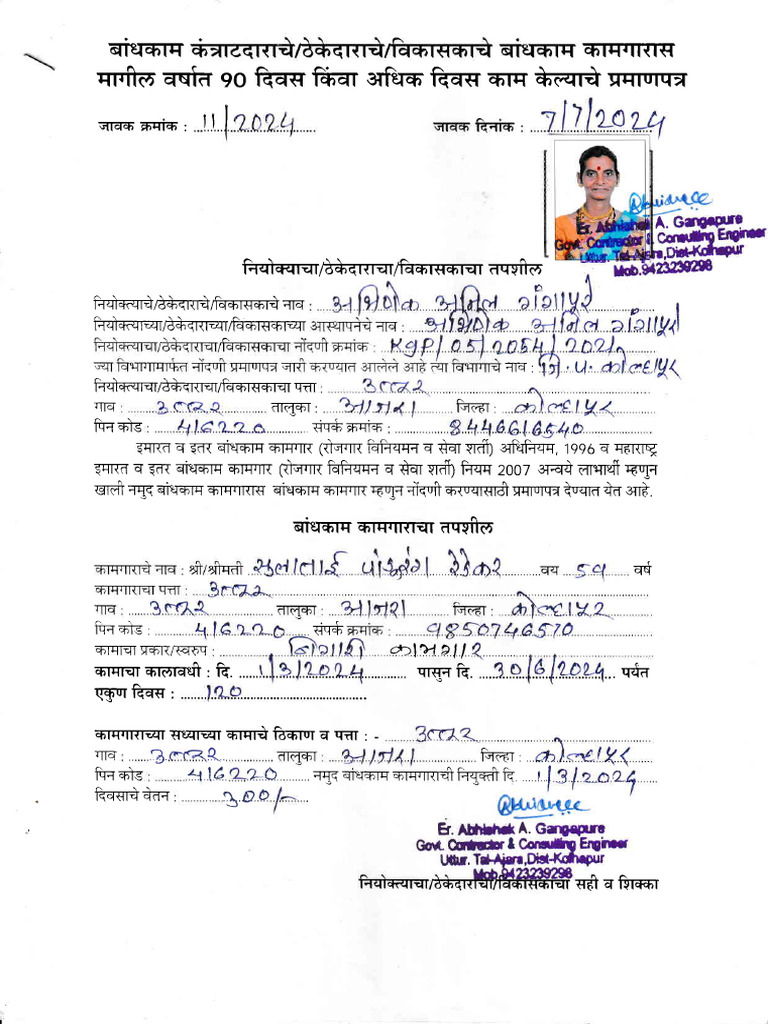 बांधकाम कंत्राटदाराचे/ठेकेदाराचे/विकासकाचे बांधकाम कामगारास
मागील वर्षात 90 दिवस किंवा अधिक दिवस काम केल्याचे प्रमाणपत्र
जावक क्रमांक : 11/2024 जावक दिनांक : 7/7/2024
Er. Abhishek A. Gangapure
Govt. Contractor & Consulting Engineer
Uttur. Tal-Ajara,Dist-Kolhapur
Mob.9423239298
नियोक्याचा/ठेकेदाराचा/विकासकाचा तपशील
नियोक्त्याचे/ठेकेदाराचे/विकासकाचे नाव : अभिषेक अनिल गंगापूरे
नियोक्त्याच्या/ठेकेदाराच्या/विकासकाच्या आस्थापनेचे नाव : अभिषेक अनिल गंगापूरे
नियोक्त्याचा/ठेकेदाराचा/विकासकाचा नोंदणी क्रमांक : KGP/05/2054/2021
ज्या विभागामार्फत नोंदणी प्रमाणपत्र जारी करण्यात आलेले आहे त्या विभागाचे नाव : जि.प. कोल्हापूर
नियोक्त्याचा/ठेकेदाराचा/विकासकाचा पत्ता : उत्तूर
गाव : उत्तूर तालुका : आजरा जिल्हा : कोल्हापूर
पिन कोड : 416220 संपर्क क्रमांक : 8446616540
इमारत व इतर बांधकाम कामगार (रोजगार विनियमन व सेवा शर्ती) अधिनियम, 1996 व महाराष्ट्र
इमारत व इतर बांधकाम कामगार (रोजगार विनियमन व सेवा शर्ती) नियम 2007 अन्वये लाभार्थी म्हणुन
खाली नमुद बांधकाम कामगारास बांधकाम कामगार म्हणुन नोंदणी करण्यासाठी प्रमाणपत्र देण्यात येत आहे.
बांधकाम कामगाराचा तपशील
कामगाराचे नाव : श्री/श्रीमती सुलाताई पांडुरंग रेडेकर वय 59 वर्ष
कामगाराचा पत्ता : उत्तूर
गाव : उत्तूर तालुका : आजरा जिल्हा : कोल्हापूर
पिन कोड : 416220 संपर्क क्रमांक : 9850746570
कामाचा प्रकार/स्वरुप : बिगारी कामगार
कामाचा कालावधी : दि. 1/3/2024 पासुन दि. 30/6/2024 पर्यंत
एकुण दिवस : 120
कामगाराच्या सध्याच्या कामाचे ठिकाण व पत्ता : - उत्तूर
गाव : उत्तूर तालुका : आजरा जिल्हा : कोल्हापूर
पिन कोड : 416220 नमुद बांधकाम कामगाराची नियुक्ती दि. 1/3/2024
दिवसाचे वेतन : 300/-
Er. Abhishek A. Gangapure
Govt. Contractor & Consulting Engineer
Uttur. Tal-Ajara,Dist-Kolhapur
Mob.9423239298
नियोक्त्याचा/ठेकेदाराचा/विकासकाचा सही व शिक्का